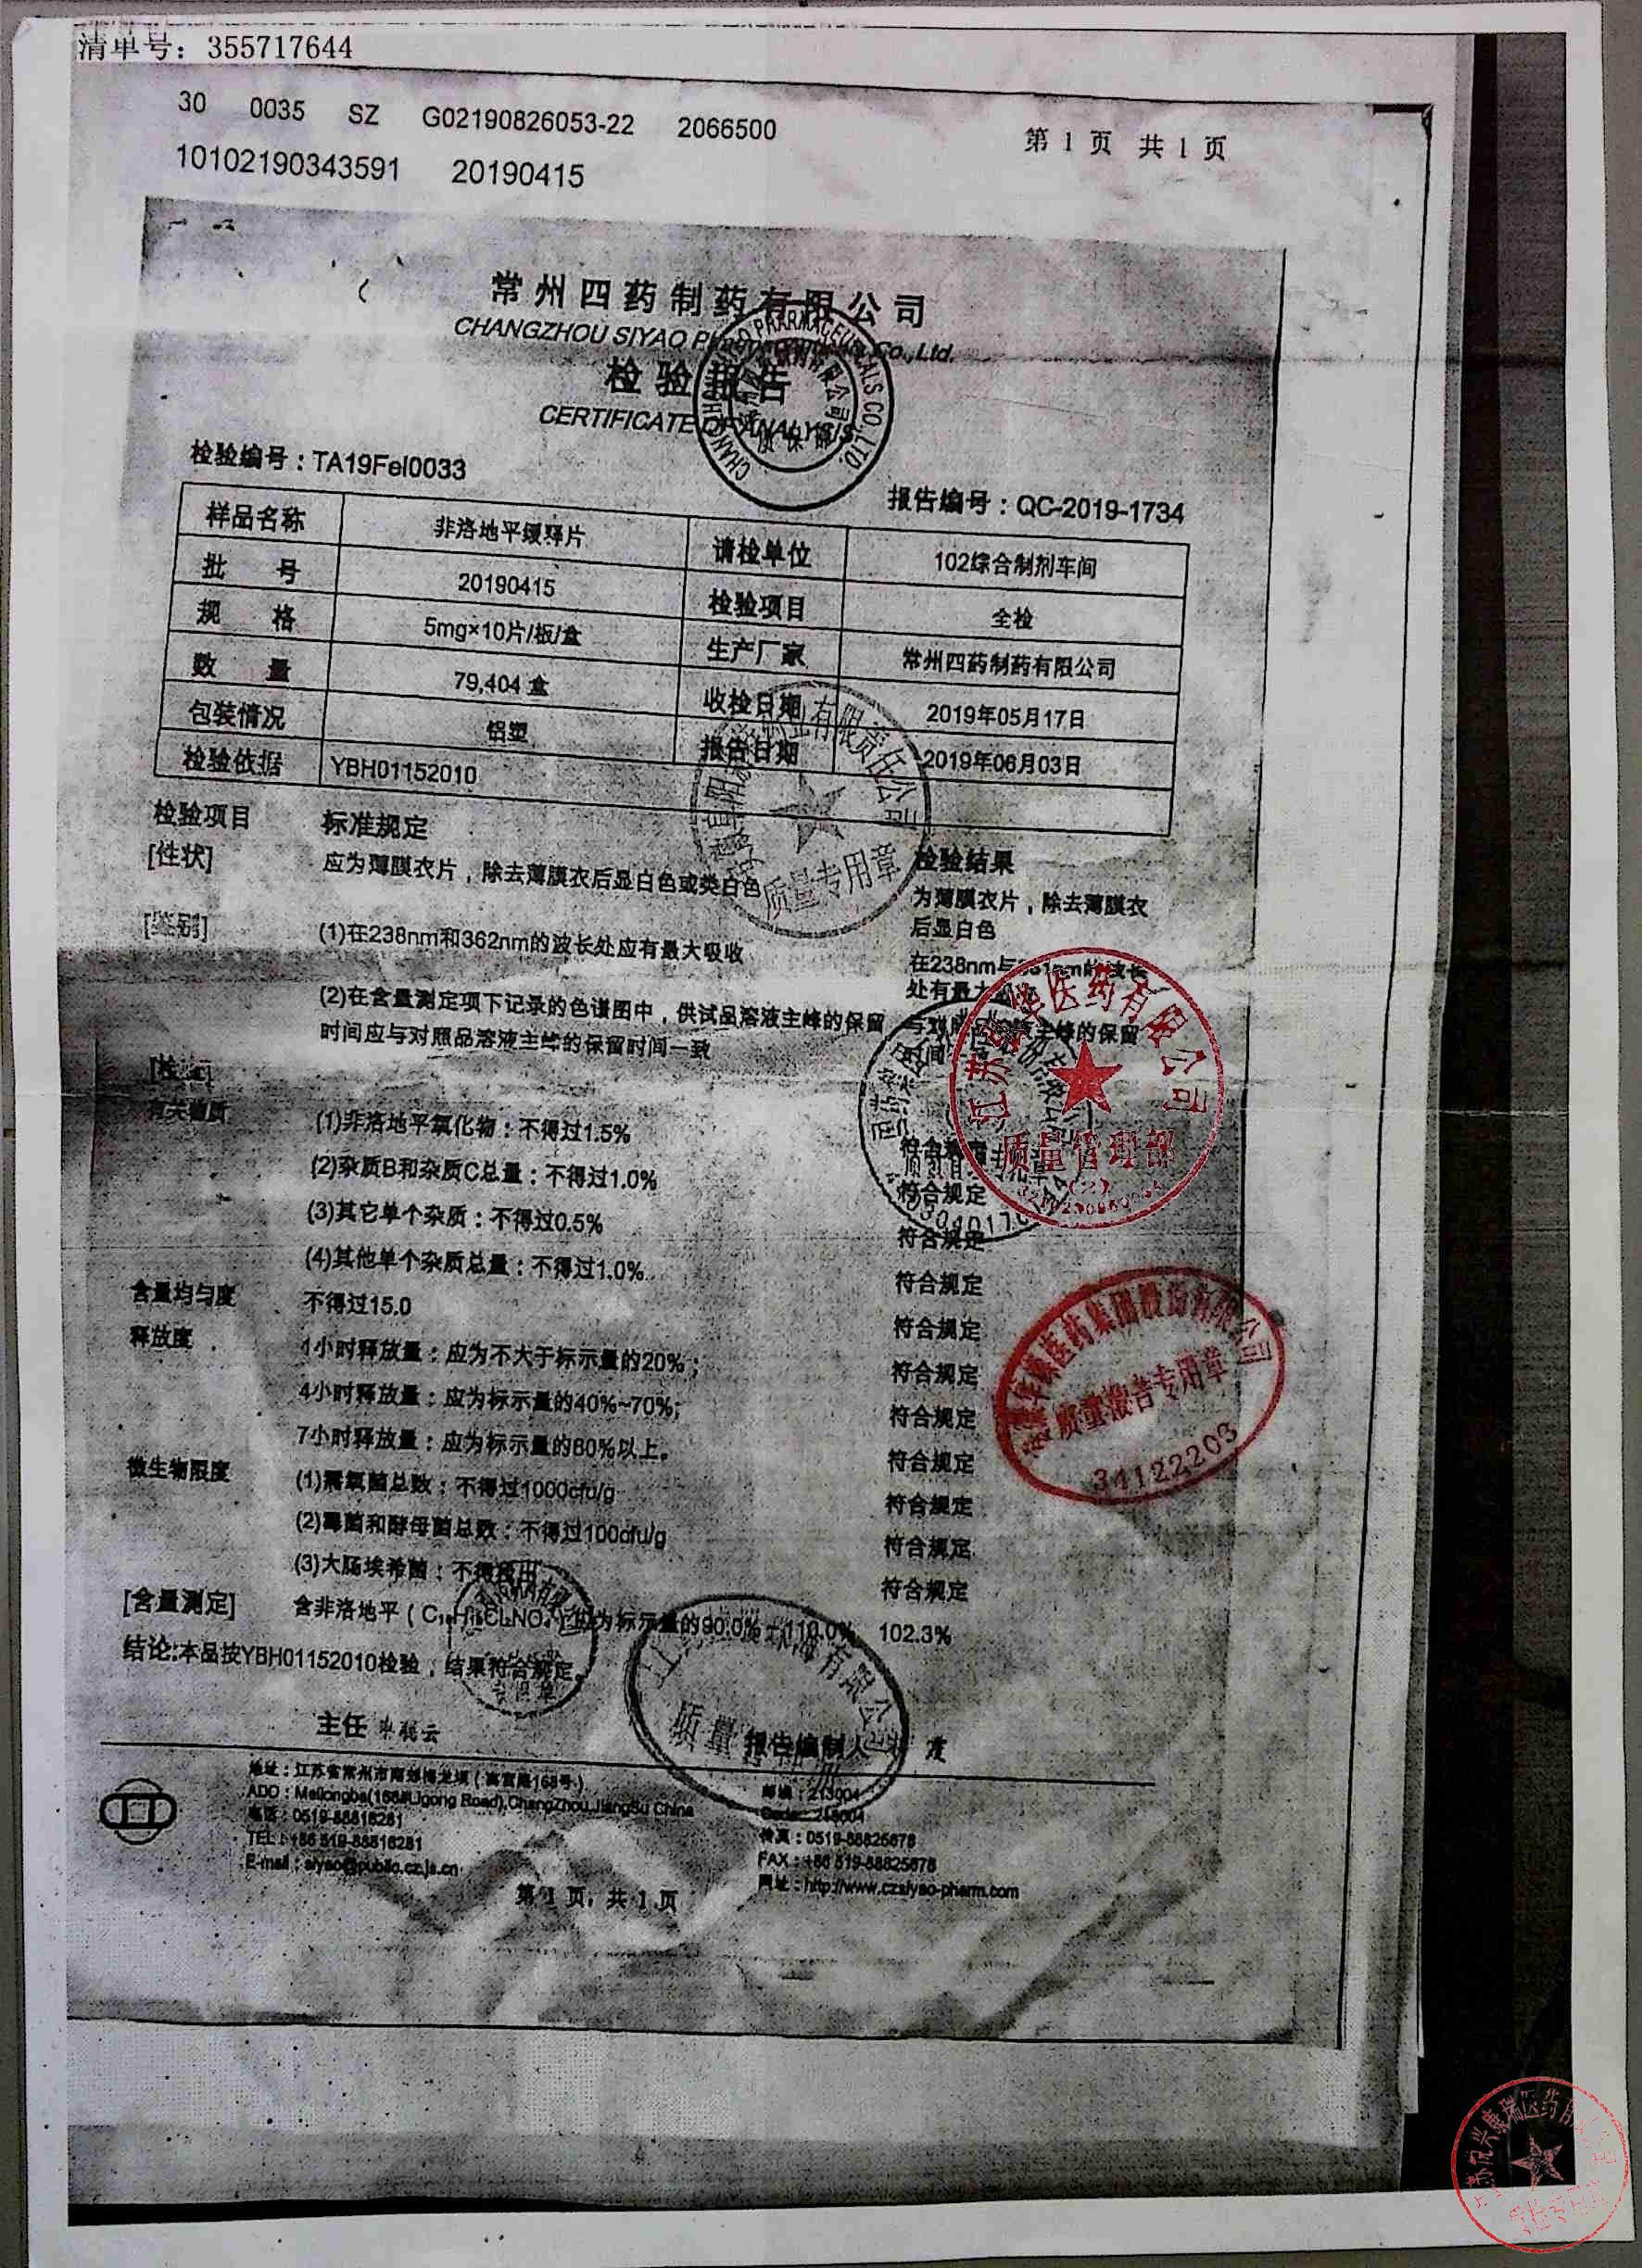 清单号：355717644
30 0035 SZ G02190826053-22 2066500
第 1 页 共 1 页
10102190343591 20190415
常州四药制药有限公司
CHANGZHOU SIYAO Co.,Ltd.
检验报告
CERTIFICATE OF ANALYSIS
检验编号：TA19Fel0033
报告编号：QC-2019-1734
样品名称 非洛地平缓释片 请检单位 102综合制剂车间
批 号 20190415 检验项目 全检
规 格 5mg×10片/板/盒 生产厂家 常州四药制药有限公司
数 量 79,404 盒 收检日期 2019年05月17日
包装情况 铝塑 报告日期 2019年06月03日
检验依据 YBH01152010
检验项目 标准规定 检验结果
[性状] 应为薄膜衣片，除去薄膜衣后显白色或类白色 为薄膜衣片，除去薄膜衣
后显白色
[鉴别] (1)在238nm和362nm的波长处应有最大吸收 在238nm与
处有最大
(2)在含量测定项下记录的色谱图中，供试品溶液主峰的保留 主峰的保留
时间应与对照品溶液主峰的保留时间一致 时间
有关物质 (1)非洛地平氧化物：不得过1.5% 符合规定
(2)杂质B和杂质C总量：不得过1.0% 符合规定
(3)其它单个杂质：不得过0.5% 符合规定
(4)其他单个杂质总量：不得过1.0% 符合规定
含量均匀度 不得过15.0 符合规定
释放度 1小时释放量：应为不大于标示量的20%； 符合规定
4小时释放量：应为标示量的40%~70%; 符合规定
7小时释放量：应为标示量的80%以上。 符合规定
微生物限度 (1)需氧菌总数：不得过1000cfu/g 符合规定
(2)霉菌和酵母菌总数：不得过100cfu/g 符合规定
(3)大肠埃希菌：不得检出 符合规定
[含量测定] 含非洛地平 应为标示量的90.0% 110.0% 102.3%
结论:本品按YBH01152010检验，结果符合规定。
主任
报告编制人
电话：0519-88816281
TEL：+86 519-88816281
E-mail：siyao@public.cz.js.cn
邮编：213004
Code：213004
传真：0519-88825678
FAX：+86 519-88825678
网址：http://www.czsiyao-pharm.com
第 1 页, 共 1 页
有限责任公司
质量专用章
医药有限公司
质量管理部
(2)
医药集团股份有限公司
质量报告专用章
34122203